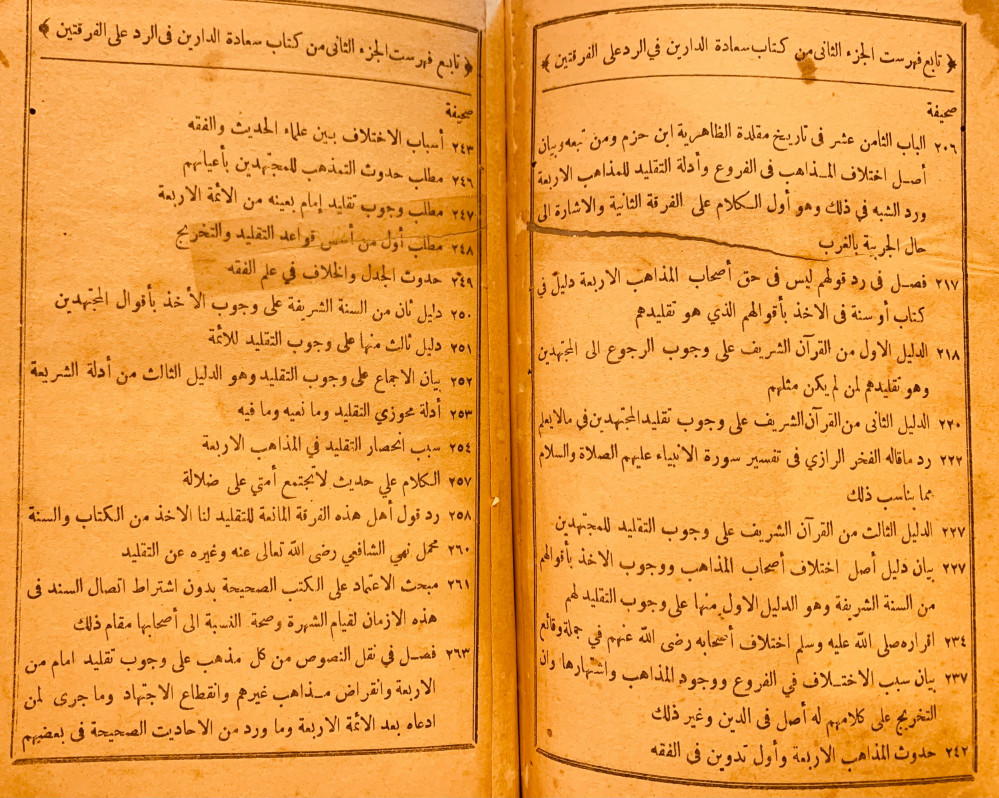 ﴿ تابع فهرست الجزء الثانى من كتاب سعادة الدارين فى الرد على الفرقتين ﴾
صحيفة
٢٠٦ الباب الثامن عشر فى تاريخ مقلدة الظاهرية ابن حزم ومن تبعه وبيان
أصل اختلاف المذاهب فى الفروع وأدلة التقليد للمذاهب الاربعة
ورد الشبه في ذلك وهو أول الكلام على الفرقة الثانية والاشارة الى
حال الجربية بالغرب
٢١٧ فصل فى رد قولهم ليس فى حق أصحاب المذاهب الاربعة دليل في
كتاب أو سنة فى الاخذ بأقوالهم الذي هو تقليدهم
٢١٨ الدليل الاول من القرآن الشريف على وجوب الرجوع الى المجتهدين
وهو تقليدهم لمن لم يكن مثلهم
٢٢٠ الدليل الثانى من القرآن الشريف على وجوب تقليد المجتهدين في مالا يعلم
٢٢٢ رد ماقاله الفخر الرازي فى تفسير سورة الانبياء عليهم الصلاة والسلام
مما يناسب ذلك
٢٢٧ الدليل الثالث من القرآن الشريف على وجوب التقليد للمجتهدين
٢٢٧ بيان دليل أصل اختلاف أصحاب المذاهب ووجوب الاخذ بأقوالهم
من السنة الشريفة وهو الدليل الاول منها على وجوب التقليد لهم
٢٣٤ اقراره صلى الله عليه وسلم اختلاف أصحابه رضى الله عنهم في جملة وقائع
٢٣٧ بيان سبب الاختلاف في الفروع ووجود المذاهب واشتهارها وان
التخريج على كلامهم له أصل فى الدين وغير ذلك
٢٤٢ حدوث المذاهب الاربعة وأول تدوين فى الفقه
﴿ تابع فهرست الجزء الثانى من كتاب سعادة الدارين فى الرد على الفرقتين ﴾
صحيفة
٢٤٣ أسباب الاختلاف بين علماء الحديث والفقه
٢٤٦ مطلب حدوث التمذهب للمجتهدين بأعيانهم
٢٤٧ مطلب وجوب تقليد إمام بعينه من الأئمة الاربعة
٢٤٨ مطلب أول من أسس قواعد التقليد والتخريج
٢٤٩ حدوث الجدل والخلاف في علم الفقه
٢٥٠ دليل ثان من السنة الشريفة على وجوب الأخذ بأقوال المجتهدين
٢٥١ دليل ثالث منها على وجوب التقليد للائمة
٢٥٢ بيان الاجماع على وجوب التقليد وهو الدليل الثالث من أدلة الشريعة
٢٥٣ أدلة مجوزي التقليد وما نعيه وما فيه
٢٥٤ سبب انحصار التقليد في المذاهب الاربعة
٢٥٧ الكلام علي حديث لا تجتمع أمتي على ضلالة
٢٥٨ رد قول أهل هذه الفرقة المانعة للتقليد لنا الاخذ من الكتاب والسنة
٢٦٠ محمل نهي الشافعي رضى الله تعالى عنه وغيره عن التقليد
٢٦١ مبحث الاعتماد على الكتب الصحيحة بدون اشتراط اتصال السند فى
هذه الازمان لقيام الشهرة وصحة النسبة الى أصحابها مقام ذلك
٢٦٣ فصل في نقل النصوص من كل مذهب على وجوب تقليد امام من
الاربعة وانقراض مذاهب غيرهم وانقطاع الاجتهاد وما جرى لمن
ادعاه بعد الأئمة الاربعة وما ورد من الاحاديت الصحيحة فى بعضهم